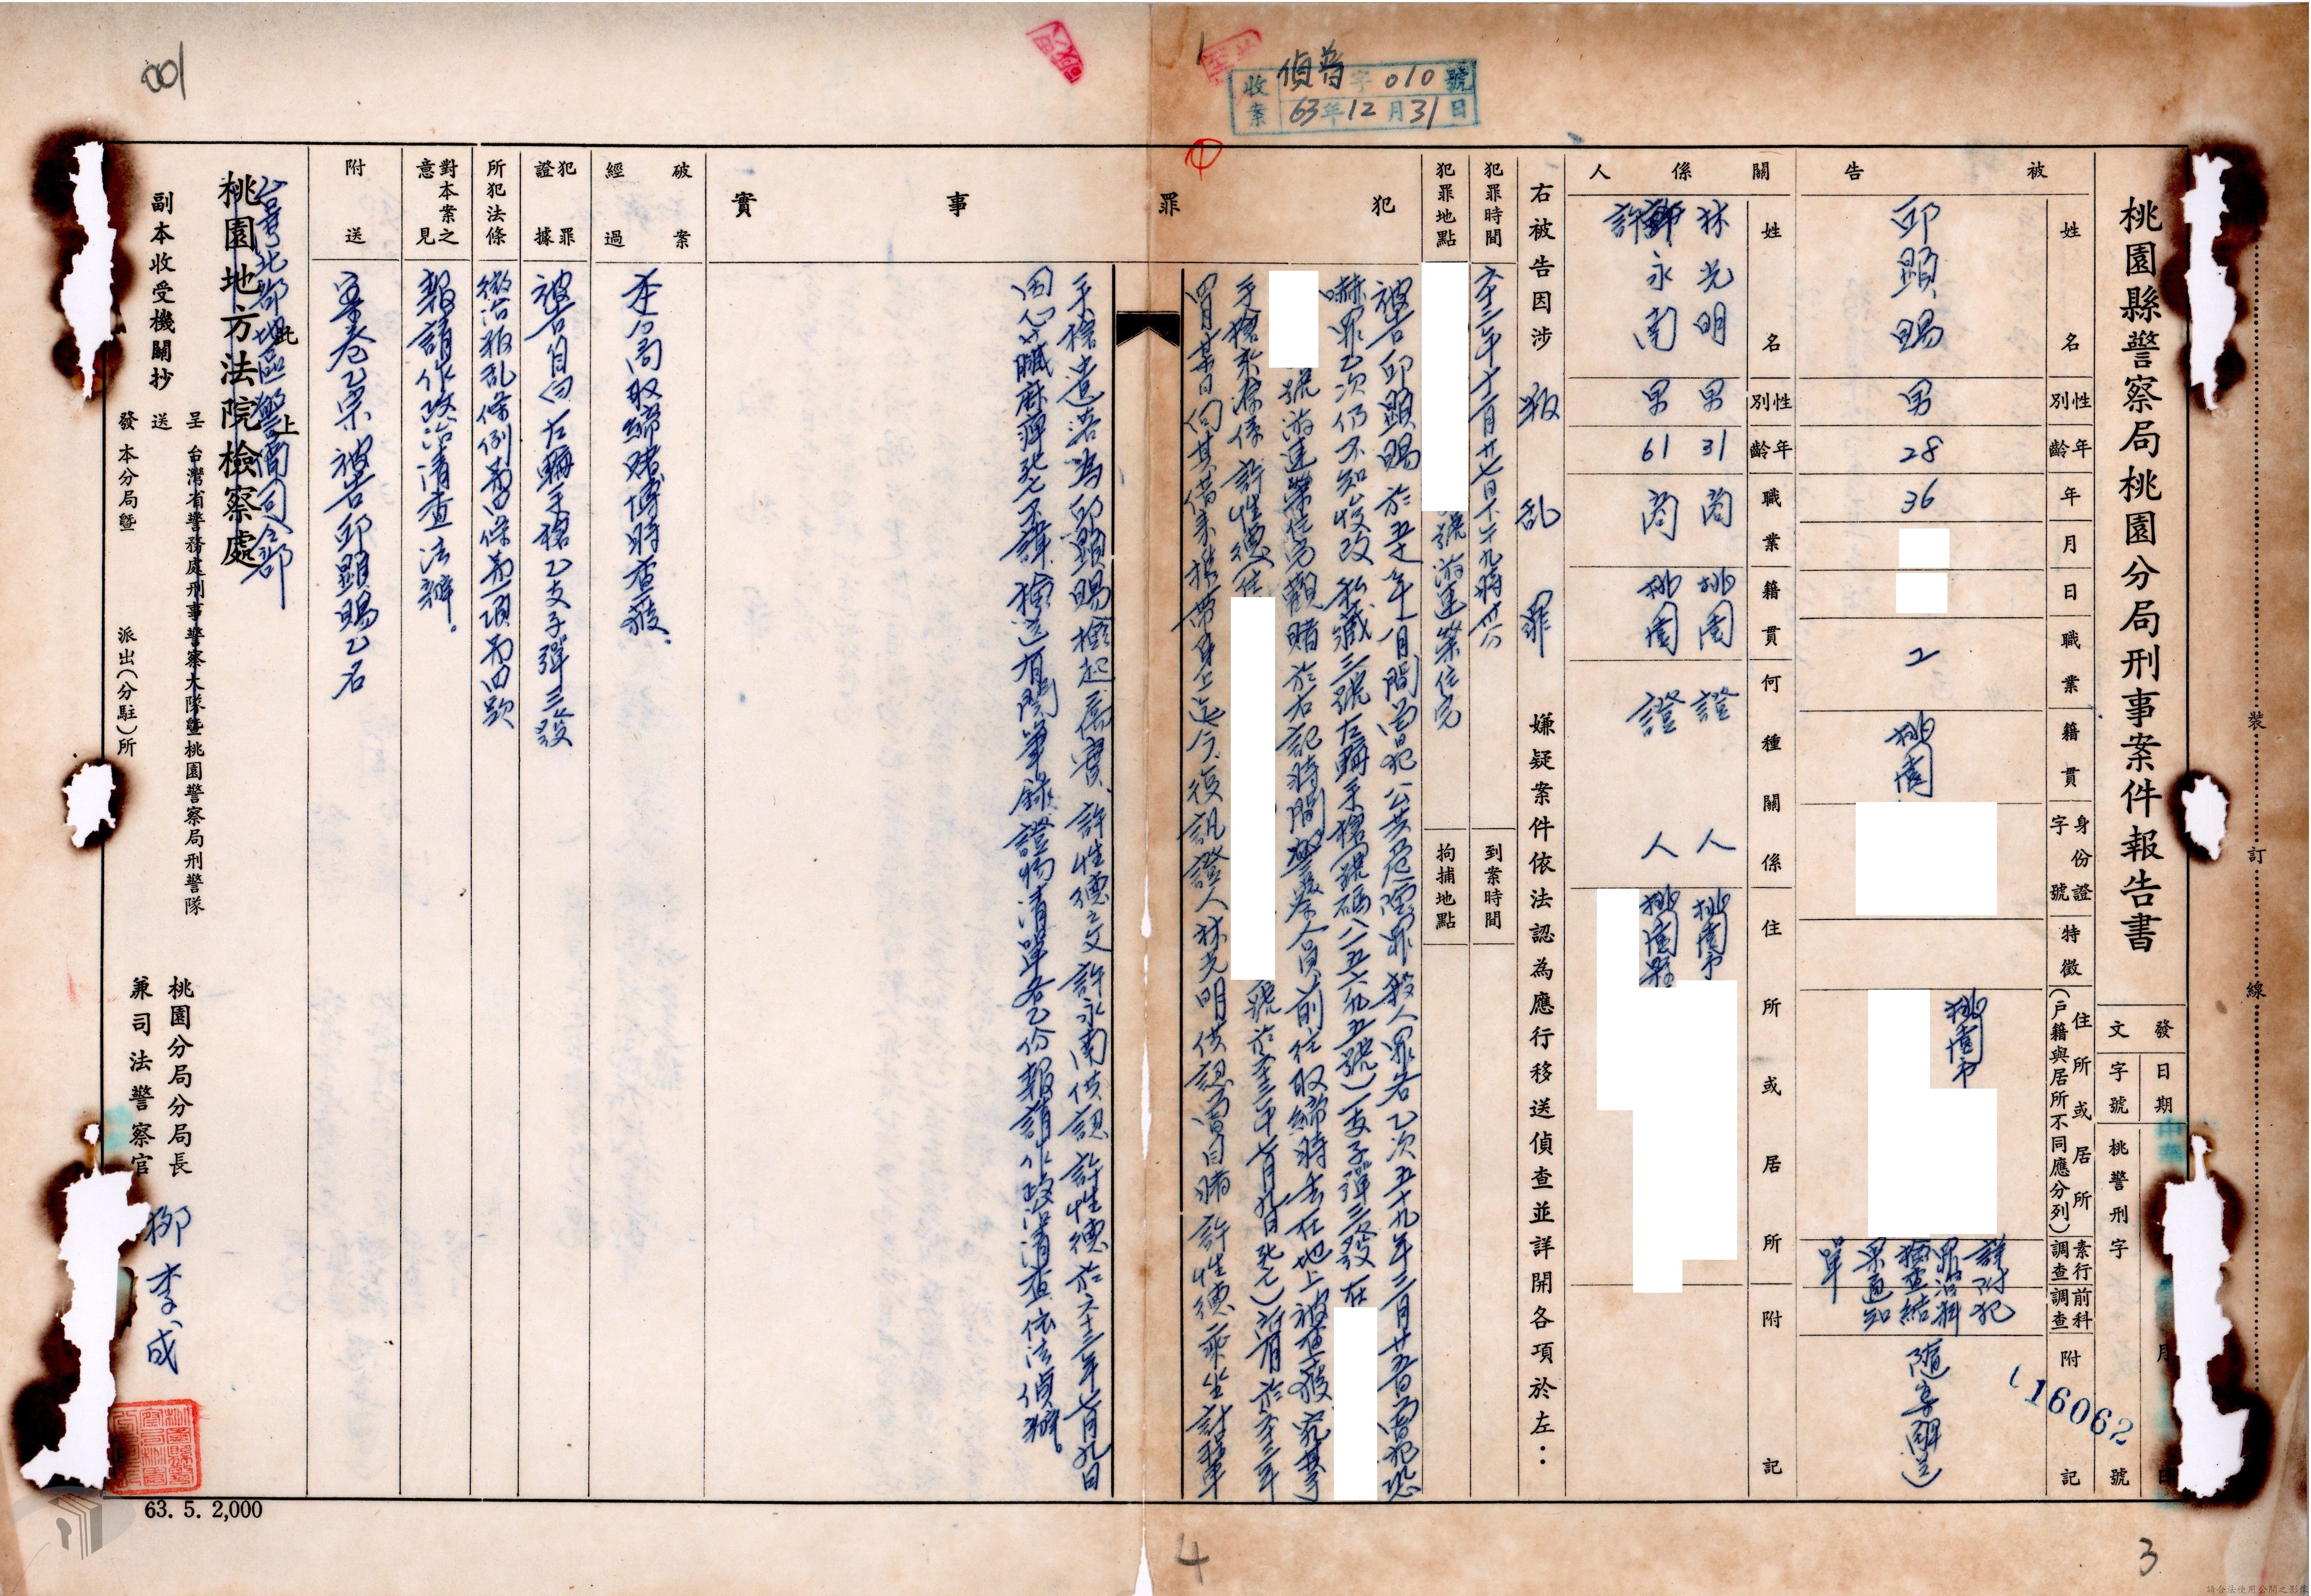 001
收案 偵普字010號
63年12月31日
桃園縣警察局桃園分局刑事案件報告書
裝 訂 線
發文
日期
字號
桃警刑字 號
16062
被告
姓名 邱顯賜
性別 男
年齡 28
年 36
月
日
職業
籍貫 桃園
身份證字號
特徵
住所或居所(戶籍與居所不同應分列) 桃園市
素行調查
前科調查
詳附犯罪前科檢查結果通知單
附記 隨案解送
關係人
姓名 林光明 許永南
性別 男 男
年齡 31 61
職業 商 商
籍貫 桃園 桃園
何種關係 證人 證人
住所或居所 桃園市 桃園縣
附記
右被告因涉叛乱罪嫌疑案件依法認為應行移送偵查並詳開各項於左:
犯罪時間 六十三年十二月廿七日下午九時卅分
到案時間
犯罪地點 號游連築住宅
拘捕地點
犯罪事實
被告邱顯賜於五十年八月間曾犯公共危險罪殺人罪各乙次五十九年三月廿五日曾犯恐
嚇罪乙次仍不知悛改私藏三號左輪手槍(號碼八五六九五號)一支子彈三發在
號游連築住宅觀賭於右記時間警察人員前往取締時丟在地上被查獲究其
手槍來源係許性德(住 號於六十三年七月九日死亡)所有於六十三年
四月廿日向其借來攜帶身上迄今復訊證人林光明供認當日睹許性德乘坐計程車
手槍遺落為邱顯賜撿起屬實許性德之父許永南供認許性德於六十三年七月九日
因心臟麻痺死亡不諱檢送有關筆錄證物清單各乙份報請作政治清查依法偵辦。
破案經過 本分局取締賭博時查獲.
犯罪證據 被告自白左輪手槍乙支子彈三發
所犯法條 懲治叛乱條例第四條第一項第四款
對本案之意見 報請作政治清查法辦。
附送 案卷乙宗被告邱顯賜乙名
此 上
台灣北部地區警備司令部
桃園地方法院檢察處
副本收受機關抄
呈 台灣省警務處刑事警察大隊暨桃園警察局刑警隊
送
發 本分局暨 派出(分駐)所
桃園分局分局長
兼司法警察官
柳李成
63. 5. 2,000
4
3
請合法使用公開之影像